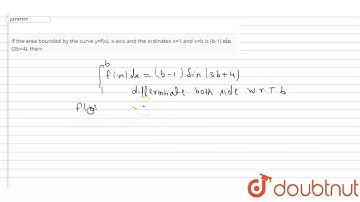 23797577
If the area bounded by the curve y=f(x), x-axis and the ordinates x=1 and x=b is (b-1) sin
(3b+4), then-
∫₁ᵇ f(x) dx = (b-1) Sin (3b+4)
differentiate both side w.r.T b
f(b) =
doubtnut